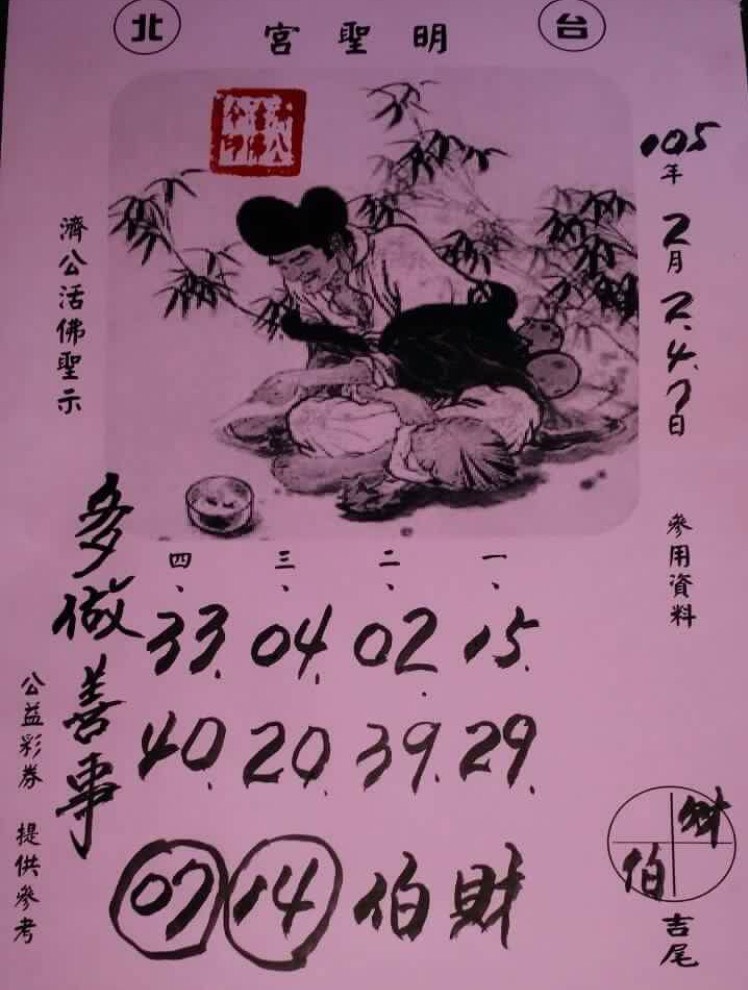 台北
明聖宮
105年2月2.4.7日
參用資料
濟公活佛聖示
一、二、三、四、
15. 02. 04. 33.
29. 39. 20. 40.
財伯 14 07
多做善事
公益彩券 提供參考
財
伯
吉尾